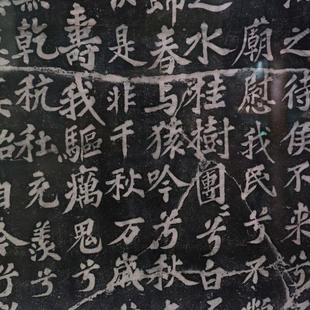 之待侯不來兮
廟慰我民兮不嚬
之水桂樹團兮白石
歸春与猿吟兮秋
是非千秋万歲
壽我驅癘鬼兮
無乾秔充羨兮
始自今兮